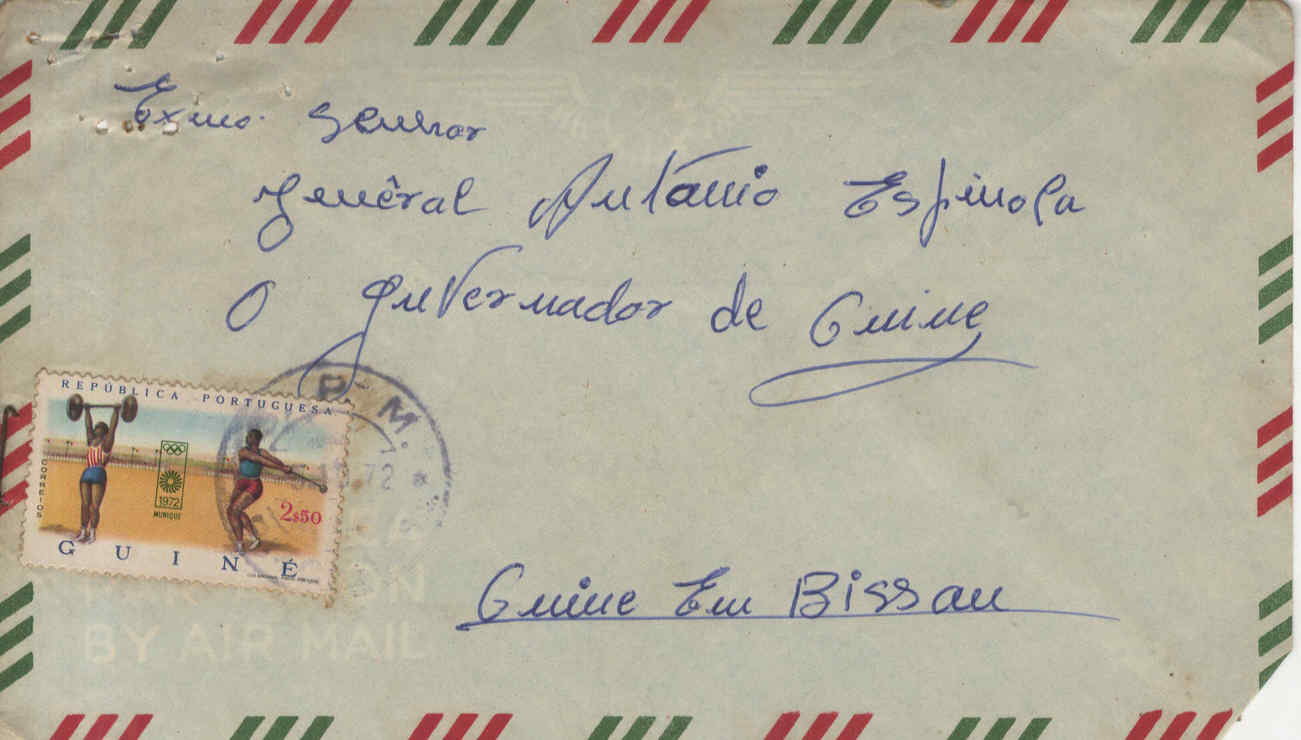 Exmo. Senhor
Genêral António Espinola
O Guvernador de Guine
P. M.
72
REPÚBLICA PORTUGUESA
CORREIOS
1972
MUNIQUE
2$50
GUINÉ
Guine Em Bissau
BY AIR MAIL